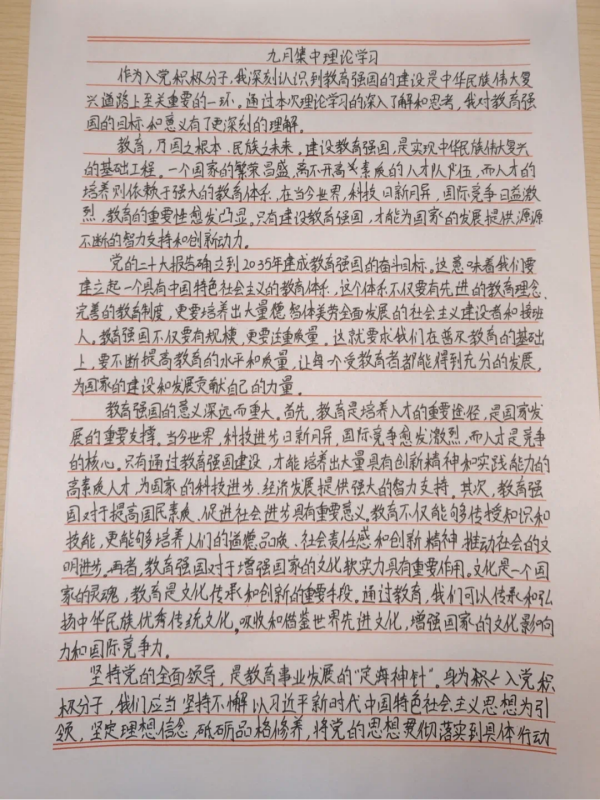 九月集中理论学习
作为入党积极分子,我深刻认识到教育强国的建设是中华民族伟大复
兴道路上至关重要的一环。通过本次理论学习的深入了解和思考,我对教育强
国的目标和意义有了更深刻的理解。
教育,乃国之根本、民族之未来。建设教育强国,是实现中华民族伟大复兴
的基础工程。一个国家的繁荣昌盛,离不开高素质的人才队伍,而人才的
培养则依赖于强大的教育体系。在当今世界,科技日新月异,国际竞争日益激
烈,教育的重要性愈发凸显。只有建设教育强国,才能为国家的发展提供源源
不断的智力支持和创新动力。
党的二十大报告确立到2035年建成教育强国的奋斗目标。这意味着我们要
建立起一个具有中国特色社会主义的教育体系,这个体系不仅要有先进的教育理念、
完善的教育制度,更要培养出大量德智体美劳全面发展的社会主义建设者和接班
人。教育强国不仅要有规模,更要注重质量。这就要求我们在普及教育的基础
上,要不断提高教育的水平和质量,让每个受教育者都能得到充分的发展,
为国家的建设和发展贡献自己的力量。
教育强国的意义深远而重大。首先,教育是培养人才的重要途径,是国家发
展的重要支撑。当今世界,科技进步日新月异,国际竞争愈发激烈,而人才是竞争
的核心。只有通过教育强国建设,才能培养出大量具有创新精神和实践能力的
高素质人才,为国家的科技进步、经济发展提供强大的智力支持。其次,教育强
国对于提高国民素质、促进社会进步具有重要意义。教育不仅能够传授知识和
技能,更能够培养人们的道德品质、社会责任感和创新精神,推动社会的文
明进步。再者,教育强国对于增强国家的文化软实力具有重要作用。文化是一个国
家的灵魂,教育是文化传承和创新的重要手段。通过教育,我们可以传承和弘
扬中华民族优秀传统文化,吸收和借鉴世界先进文化,增强国家的文化影响
力和国际竞争力。
坚持党的全面领导,是教育事业发展的“定海神针”。身为入党积
极分子,我们应当坚持不懈以习近平新时代中国特色社会主义思想为引
领,坚定理想信念,砥砺品格修养,将党的思想贯彻落实到具体行动